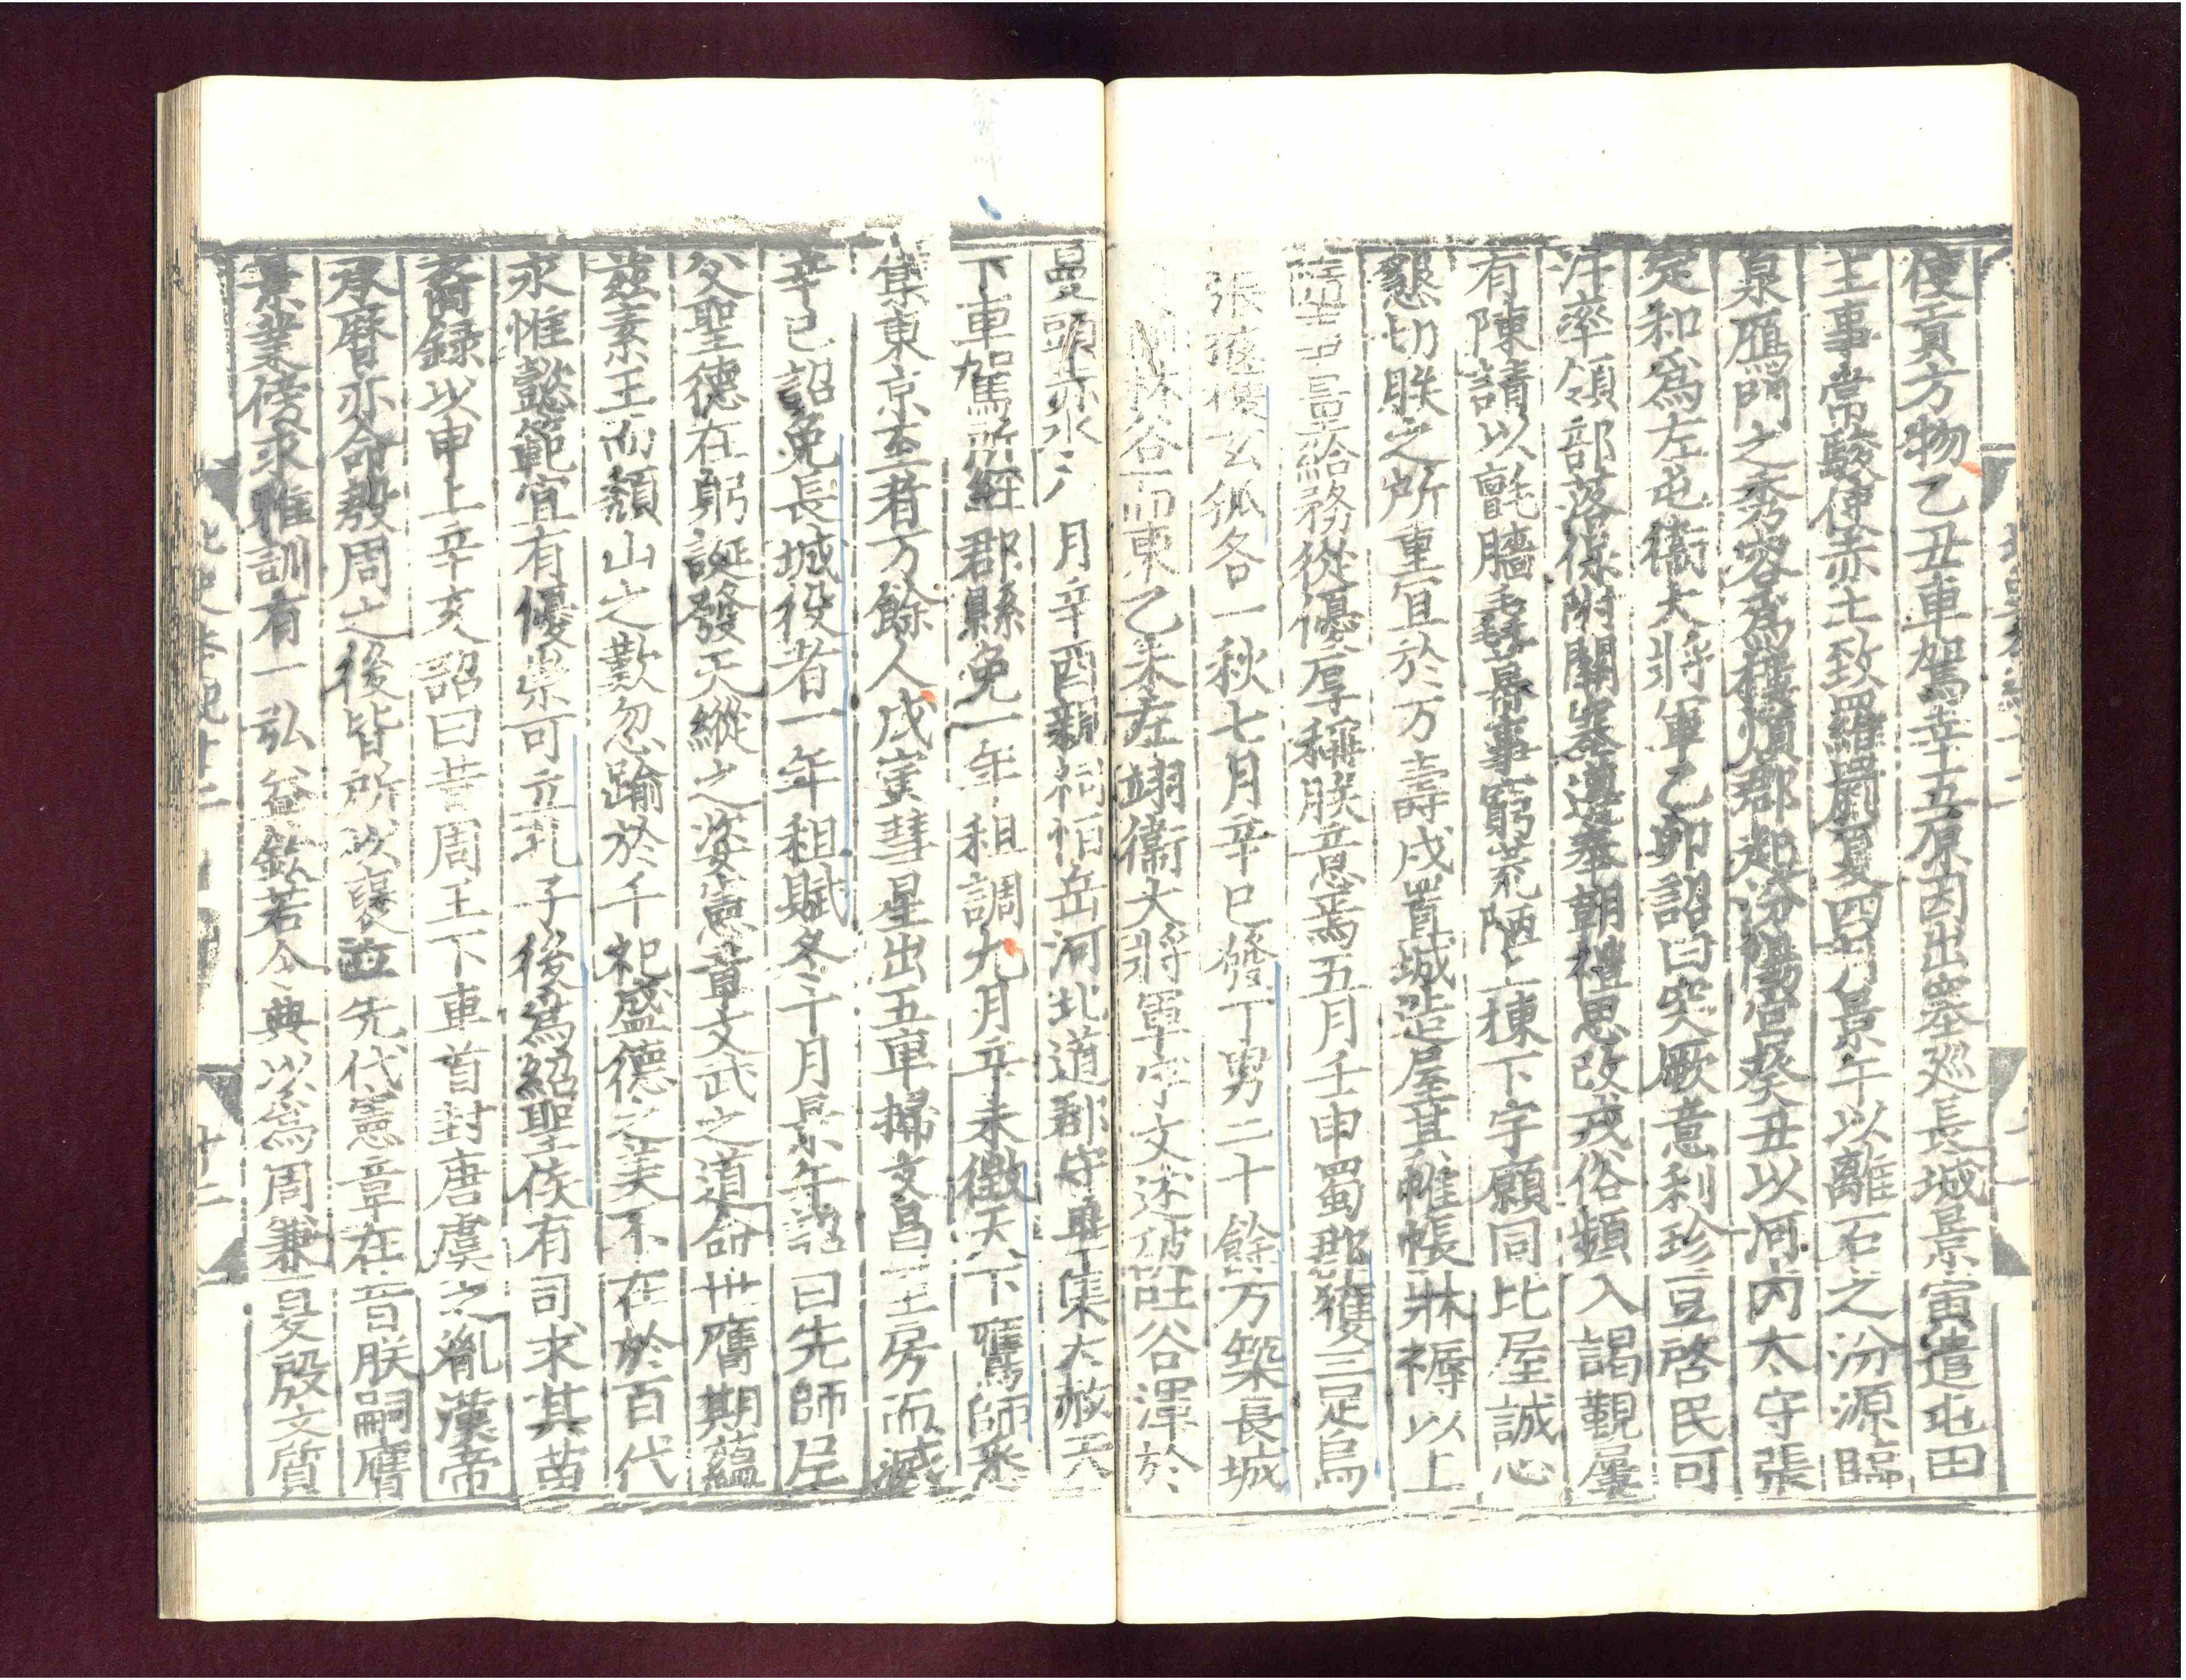 使貢方物乙丑車駕幸五原因出塞巡長城景寅遣屯田
主事常駿使赤土致羅罽夏四月景午以離石之汾源臨
泉鴈門之秀容爲樓煩郡起汾陽宮癸丑以河內太守張
定和爲左屯衞大將軍乙卯詔曰突厥意利珍豆啓民可
汗率領部落保附關塞遵奉朝禮思改戎俗頻入謁覲屢
有陳請以氈牆毳幕事窮荒陋上棟下宇願同比屋誠心
懇切朕之所重宜於万壽戍置城造屋其帷帳牀褥以上
給務從優厚稱朕意焉五月壬申蜀郡獲三足烏
張掖獲玄狐各一秋七月辛巳發丁男二十餘万築長城
谷而東乙未左翊衞大將軍宇文述破吐谷渾於
曼頭赤水八月辛酉親祠恒岳河北道郡守畢集大赦天
下車駕所經郡縣免一年租調九月辛未徵天下鷹師悉
集東京至者万餘人戊寅彗星出五車掃文昌至房而滅
辛巳詔免長城役者一年租賦冬十月景午詔曰先師尼
父聖德在躬誕發天縱之姿憲章文武之道命世膺期蘊
茲素王而頹山之歎忽踰於千祀盛德之美不在於百代
永惟懿範宜有優崇可立孔子後爲紹聖侯有司求其苗
裔録以申上辛亥詔曰昔周王下車首封唐虞之胤漢帝
承曆亦命殷周之後皆所以襃竝先代憲章在昔朕嗣膺
景業傍求雅訓有一弘益欽若令典以爲周兼夏殷文質